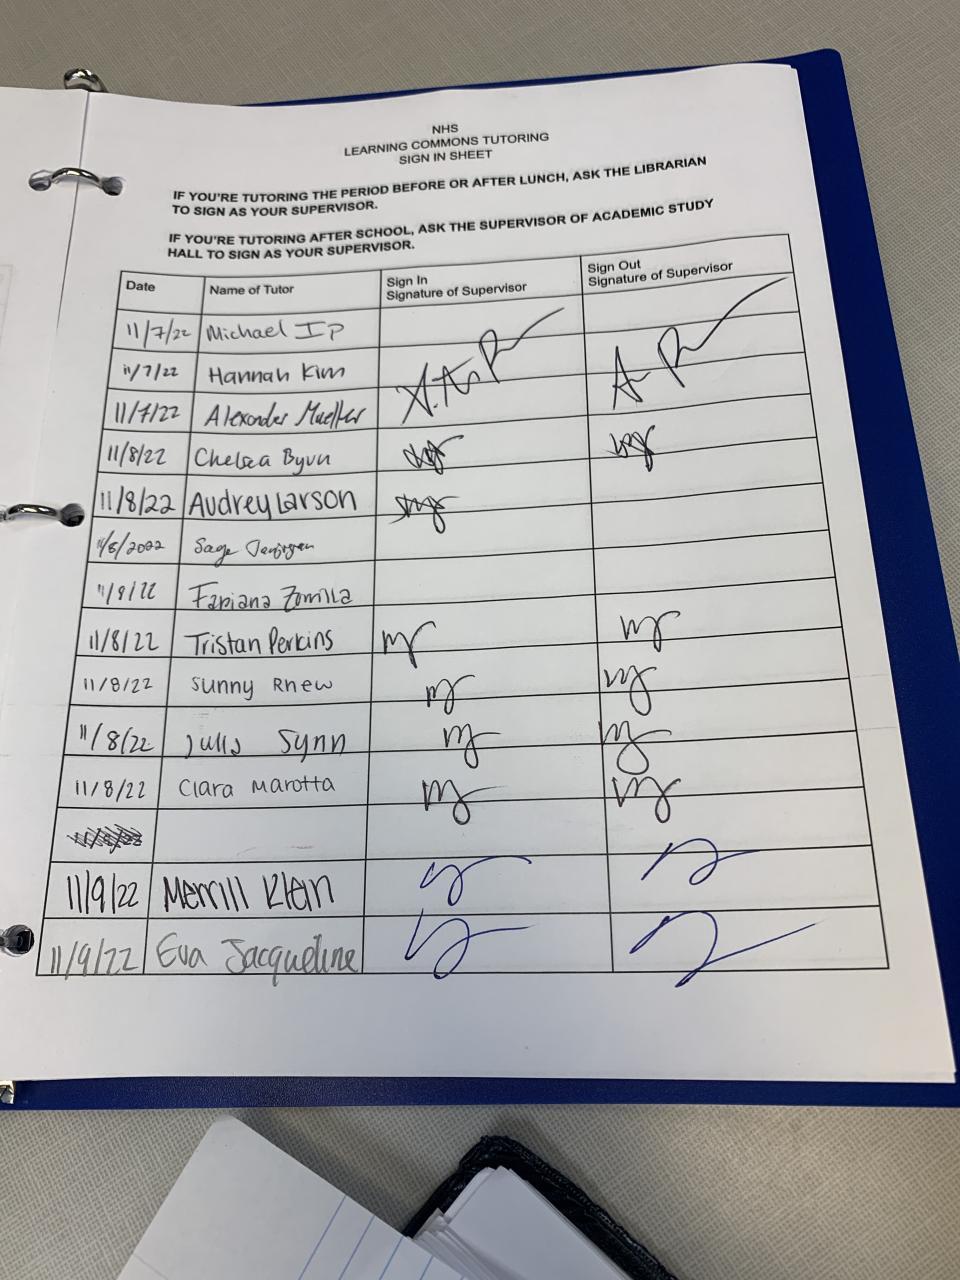 NHS
LEARNING COMMONS TUTORING
SIGN IN SHEET
IF YOU'RE TUTORING THE PERIOD BEFORE OR AFTER LUNCH, ASK THE LIBRARIAN
TO SIGN AS YOUR SUPERVISOR.
IF YOU'RE TUTORING AFTER SCHOOL, ASK THE SUPERVISOR OF ACADEMIC STUDY
HALL TO SIGN AS YOUR SUPERVISOR.
Date Name of Tutor Sign In Signature of Supervisor Sign Out Signature of Supervisor
11/7/22 Michael Ip
11/7/22 Hannah Kim
11/7/22 Alexander
11/8/22 Chelsea Byun
11/8/22 Audrey Larson
11/8/2022 Sage
11/8/22 Fabiana
11/8/22 Tristan Perkins
11/8/22 Sunny Rhew
11/8/22 Julia Synn
11/8/22 Clara Marotta
11/9/22 Merrill Klein
11/9/22 Eva Jacqueline